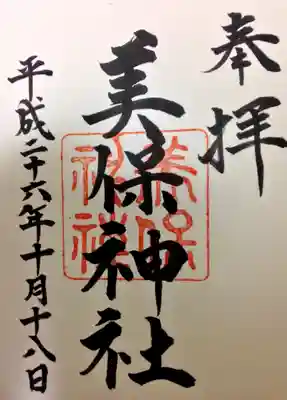 奉拝
美保神社
美保神社
平成二十六年十月十八日